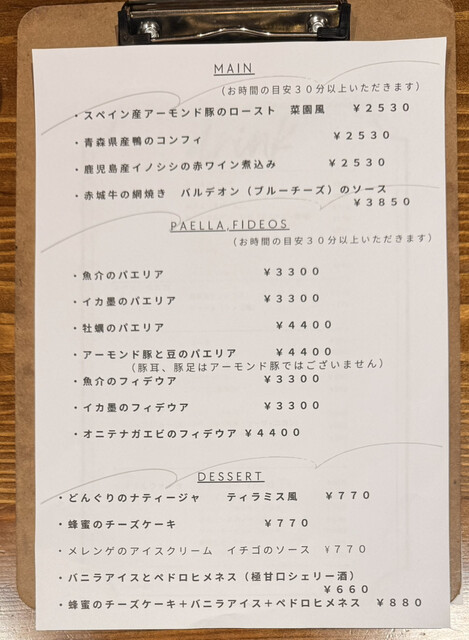 MAIN
（お時間の目安３０分以上いただきます）
・スペイン産アーモンド豚のロースト　菜園風　￥２５３０
・青森県産鴨のコンフィ　￥２５３０
・鹿児島産イノシシの赤ワイン煮込み　￥２５３０
・赤城牛の網焼き　バルデオン（ブルーチーズ）のソース
￥３８５０
PAELLA,FIDEOS
（お時間の目安３０分以上いただきます）
・魚介のパエリア　￥３３００
・イカ墨のパエリア　￥３３００
・牡蠣のパエリア　￥４４００
・アーモンド豚と豆のパエリア　￥４４００
（豚耳、豚足はアーモンド豚ではございません）
・魚介のフィデウア　￥３３００
・イカ墨のフィデウア　￥３３００
・オニテナガエビのフィデウア ￥４４００
DESSERT
・どんぐりのナティージャ　ティラミス風　￥７７０
・蜂蜜のチーズケーキ　￥７７０
・メレンゲのアイスクリーム　イチゴのソース　￥７７０
・バニラアイスとペドロヒメネス（極甘口シェリー酒）
￥６６０
・蜂蜜のチーズケーキ＋バニラアイス＋ペドロヒメネス　￥８８０